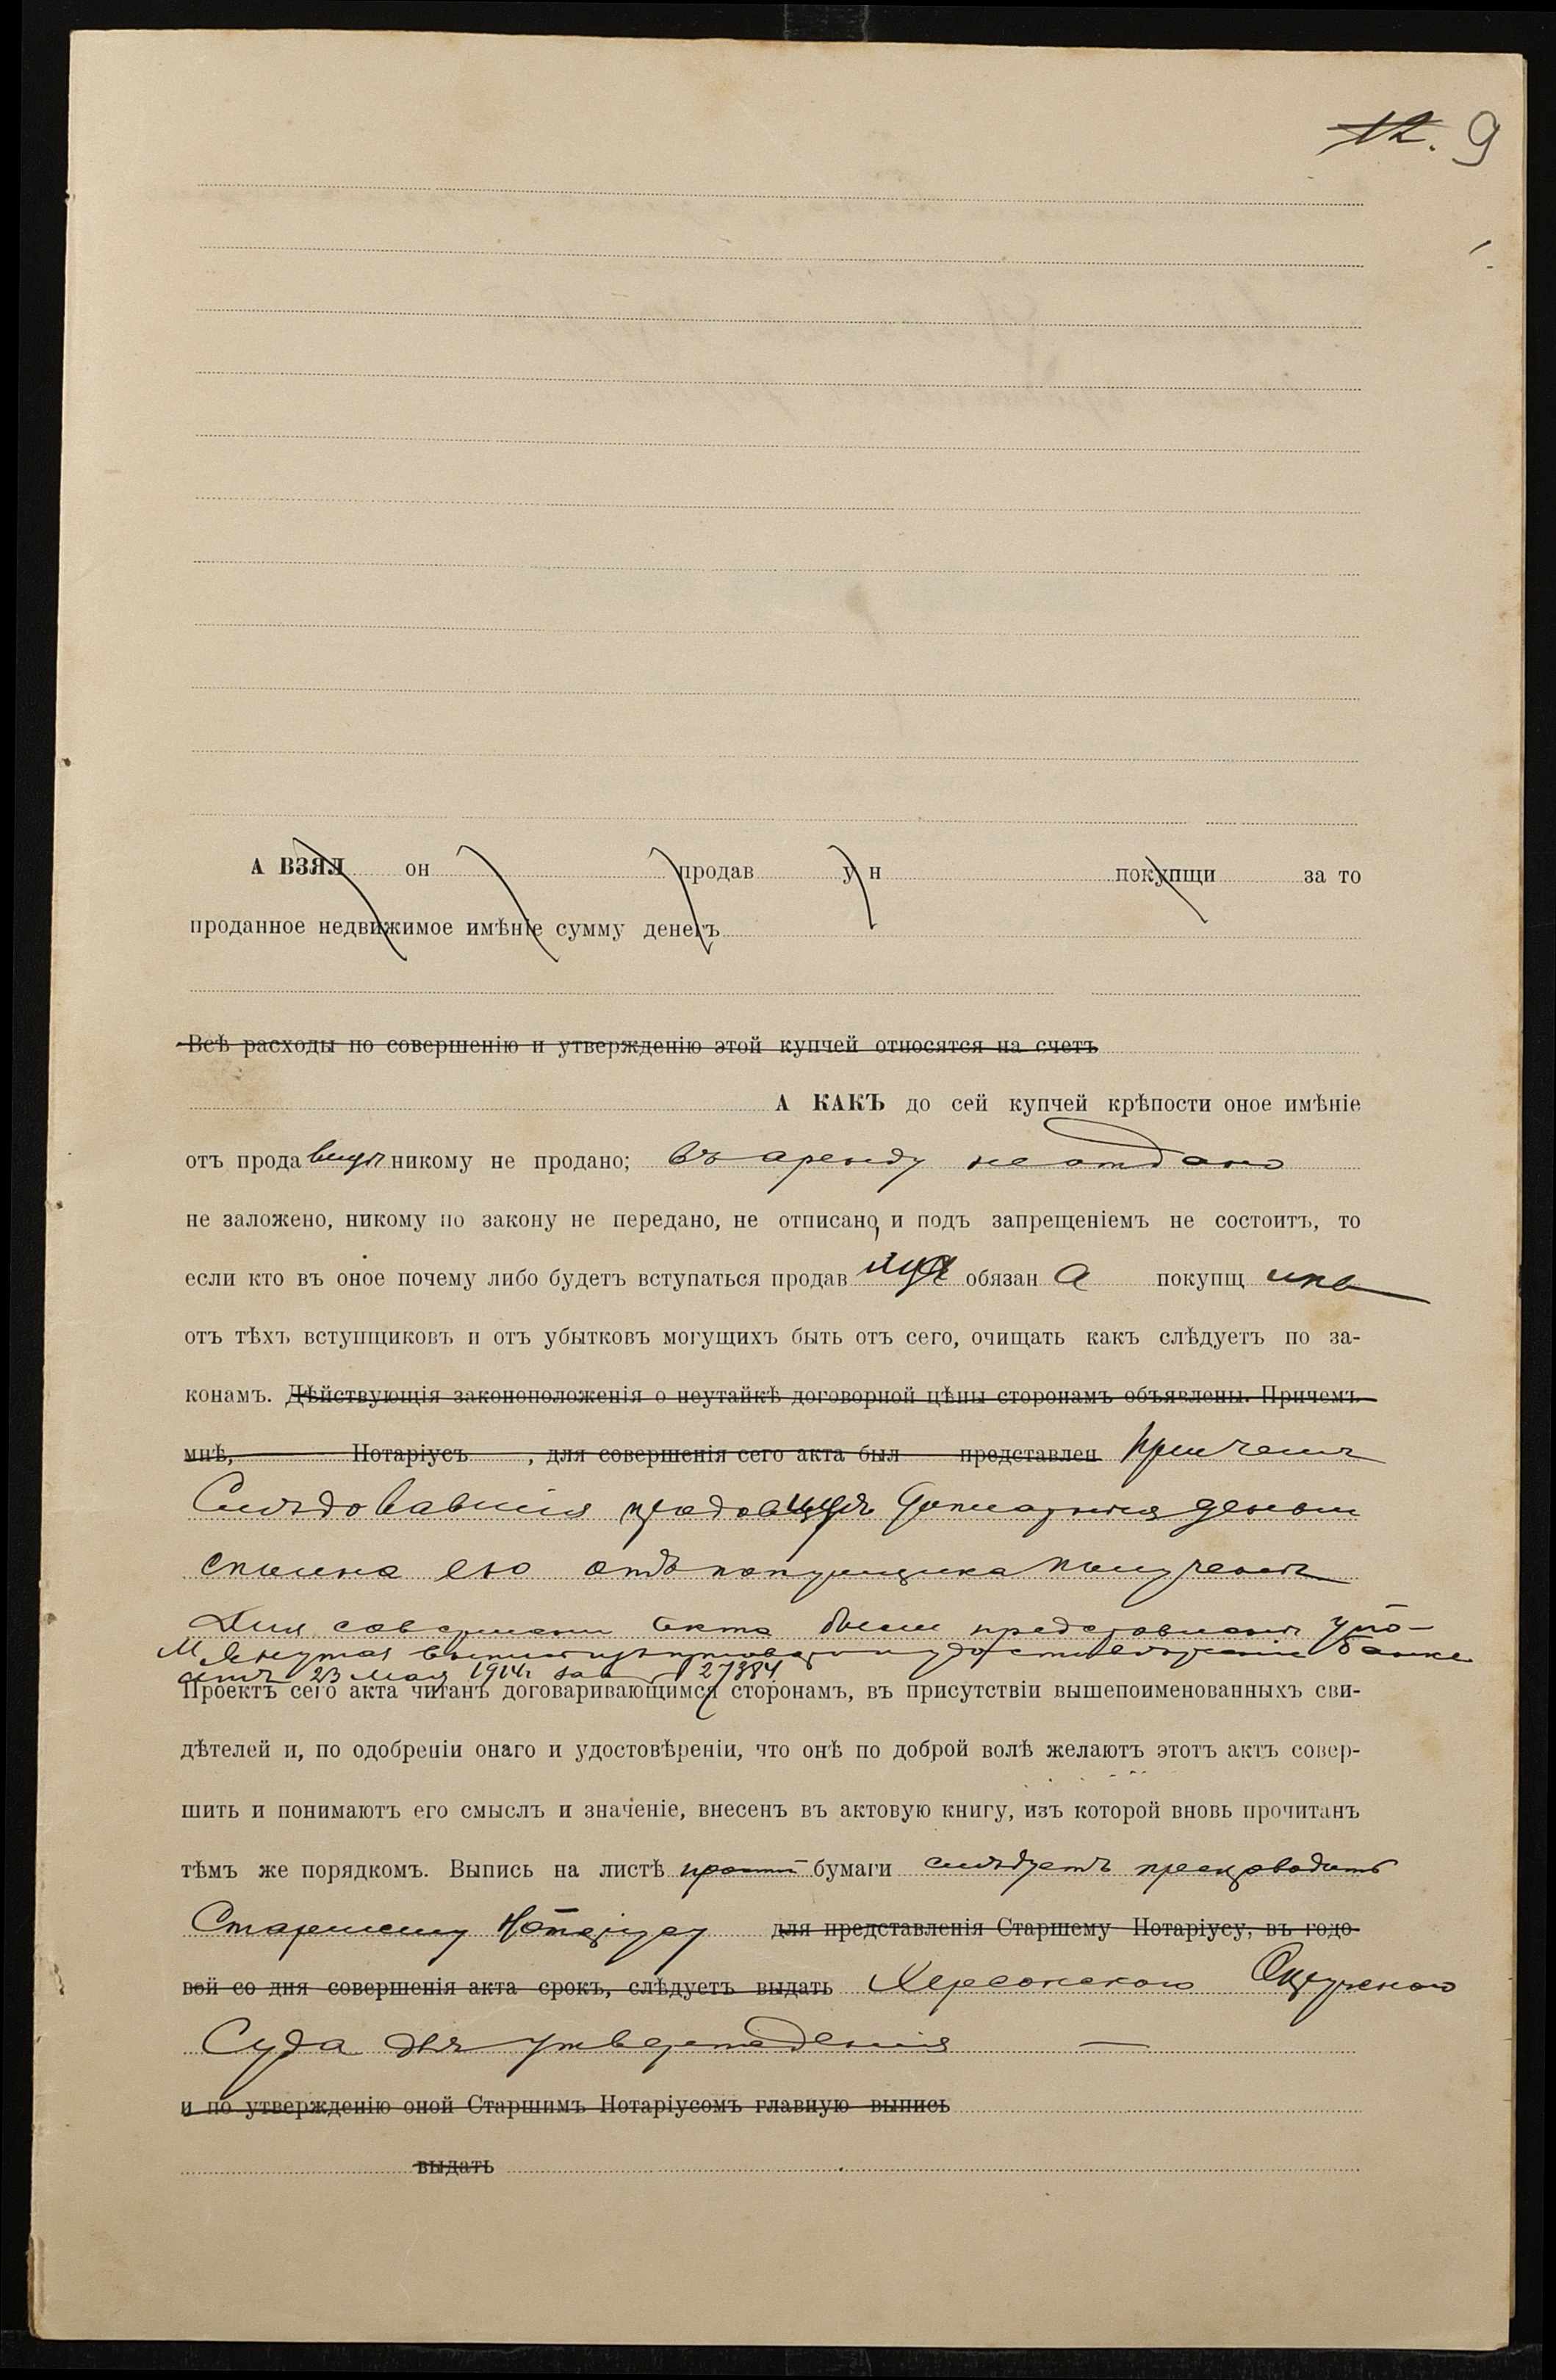 12. 9
А ВЗЯЛ он продав у н покупщи за то
проданное недвижимое имѣніе сумму денегъ
Всѣ расходы по совершенію и утвержденію этой купчей относятся на счетъ
А КАКЪ до сей купчей крѣпости оное имѣніе
отъ продавицы никому не продано; въ аренду не отдано
не заложено, никому по закону не передано, не отписано, и подъ запрещеніемъ не состоитъ, то
если кто въ оное почему либо будетъ вступаться продав ица обязан а покупщ ика
отъ тѣхъ вступщиковъ и отъ убытковъ могущихъ быть отъ сего, очищать какъ слѣдуетъ по за-
конамъ. Дѣйствующія законоположенія о неутайкѣ договорной цѣны сторонамъ объявлены. Причемъ
мнѣ, Нотаріусъ , для совершенія сего акта был представлен Причемъ
Слѣдовавшія продавицѣ деньги
сполна ею отъ покупщика получены
Для совершенія акта были представлены упо-
мянутая выпись и удостовѣреніе Банка
отъ 23 Мая 1914г за № 27384
Проектъ сего акта читанъ договаривающимся сторонамъ, въ присутствіи вышепоименованныхъ сви-
дѣтелей и, по одобреніи онаго и удостовѣреніи, что онѣ по доброй волѣ желаютъ этотъ актъ совер-
шить и понимаютъ его смыслъ и значеніе, внесенъ въ актовую книгу, изъ которой вновь прочитанъ
тѣмъ же порядкомъ. Выпись на листѣ простой бумаги слѣдуетъ препроводить
Старшему Нотаріусу для представленія Старшему Нотаріусу, въ годо-
вой со дня совершенія акта срокъ, слѣдуетъ выдать Херсонскаго Окружного
Суда для утвержденія —
и по утвержденію оной Старшимъ Нотаріусомъ главную выпись
выдать